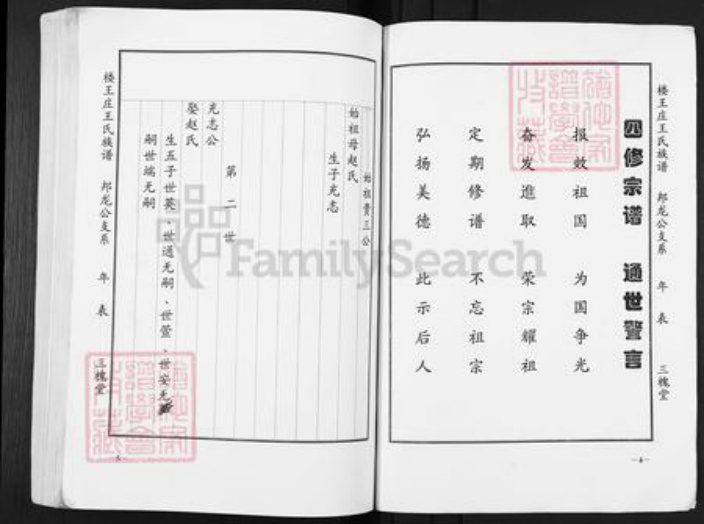 楼王庄王氏族谱 邦龙公支系 年表 三槐堂
四修宗谱 通世警言
报效祖国 为国争光
奋发進取 荣宗耀祖
定期修谱 不忘祖宗
弘扬美德 此示后人
—4—
始祖贵三公
始祖母赵氏
生子光志
第二世
光志公
娶赵氏
生五子世英、世通无嗣、世萱、世安无嗣
嗣世端无嗣
楼王庄王氏族谱 邦龙公支系 年表 三槐堂
FamilySearch